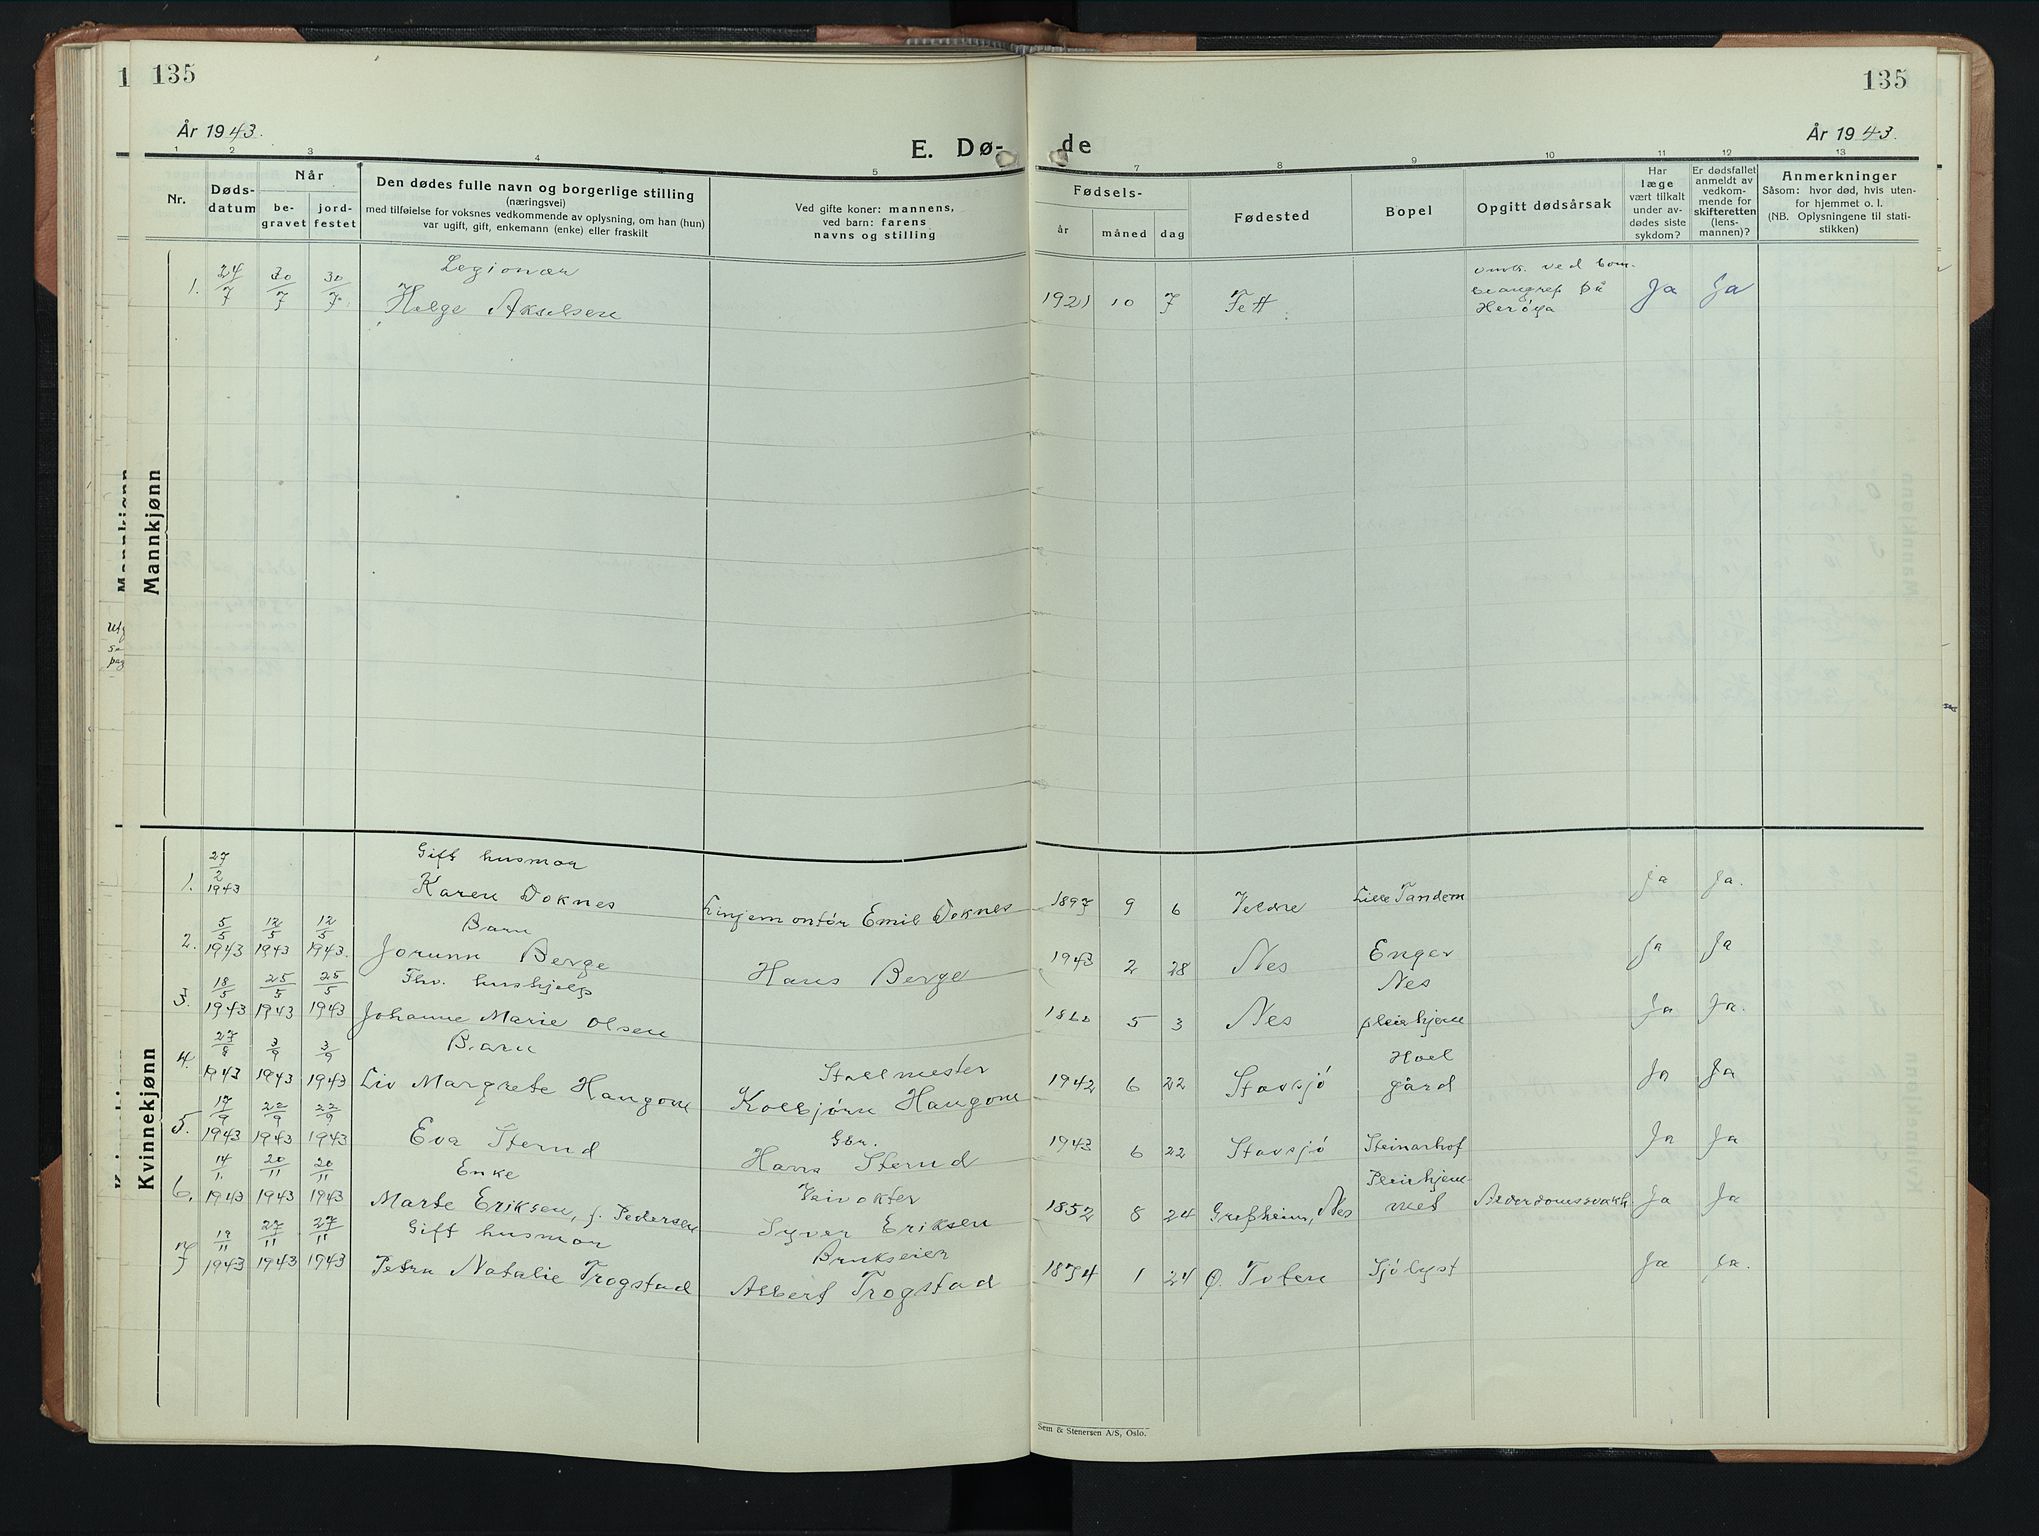 135
135
År 1943.
År 1943.
E. Dø-
de
1 2 3 4 5
7 8 9 10 11 12 13
Nr.
Døds-
datum
Når
be-
gravet
jord-
festet
Den dødes fulle navn og borgerlige stilling
(næringsvei)
med tilføielse for voksnes vedkommende av oplysning, om han (hun)
var ugift, gift, enkemann (enke) eller fraskilt
Ved gifte koner: mannens,
ved barn: farens
navns og stilling
Fødsels-
år
måned
dag
Fødested
Bopel
Opgitt dødsårsak
Har
læge
vært tilkalt
under av-
dødes siste
sykdom?
Er dødsfallet
anmeldt av
vedkom-
mende for
skifteretten
(lens-
mannen)?
Anmerkninger
Såsom: hvor død, hvis uten-
for hjemmet o. l.
(NB. Oplysningene til stati-
stikken)
Mannkjønn
Legionær
1. 24/7 30/7 30/7 Helge Akselsen 1921 10 7 ved bom-
beangrep på
Herøya Ja Ja
Kvinnekjønn
Gift husmor
1. 27/2 1943 Karen Doknes Linjemontör Emil Doknes 1897 9 6 Veldre Lille Tandem Ja Ja.
Barn
2. 5/5 1943 12/5 1943 12/5 1943. Jorunn Berge Hans Berge 1943 2 28 Nes Enger
Nes Ja Ja
Fhv. hushjelp
3. 18/5 1943 25/5 1943 25/5 1943 Johanne Marie Olsen 1860 5 3 Nes pleiehjem Ja Ja.
Barn
4. 27/8 1943 3/9 1943 3/9 1943 Liv Margrete Haugom Stallmester
Kolbjørn Haugom 1942 6 22 Stavsjö Hoel
gård Ja Ja
5. 17/9 1943 22/9 1943 22/9 1943 Eva Sterud Gbr.
Hans Sterud 1943 6 22 Stavsjö Steinarhof Ja Ja
Enke
6. 1943 20/11 1943 20/11 1943 Marte Eriksen, f. Pedersen Veivokter
Syver Eriksen 1852 8 24 Grefsheim, Nes Pleiehjem-
met Alderdomssvakh Ja Ja
Gift husmor
7 1943 27/11 1943 27/11 1943 Petra Natalie Trogstad Brukseier
Albert Trogstad 1874 1 24 Ø. Toten Sjölyst Ja Ja.
Sem & Stenersen A/S, Oslo.